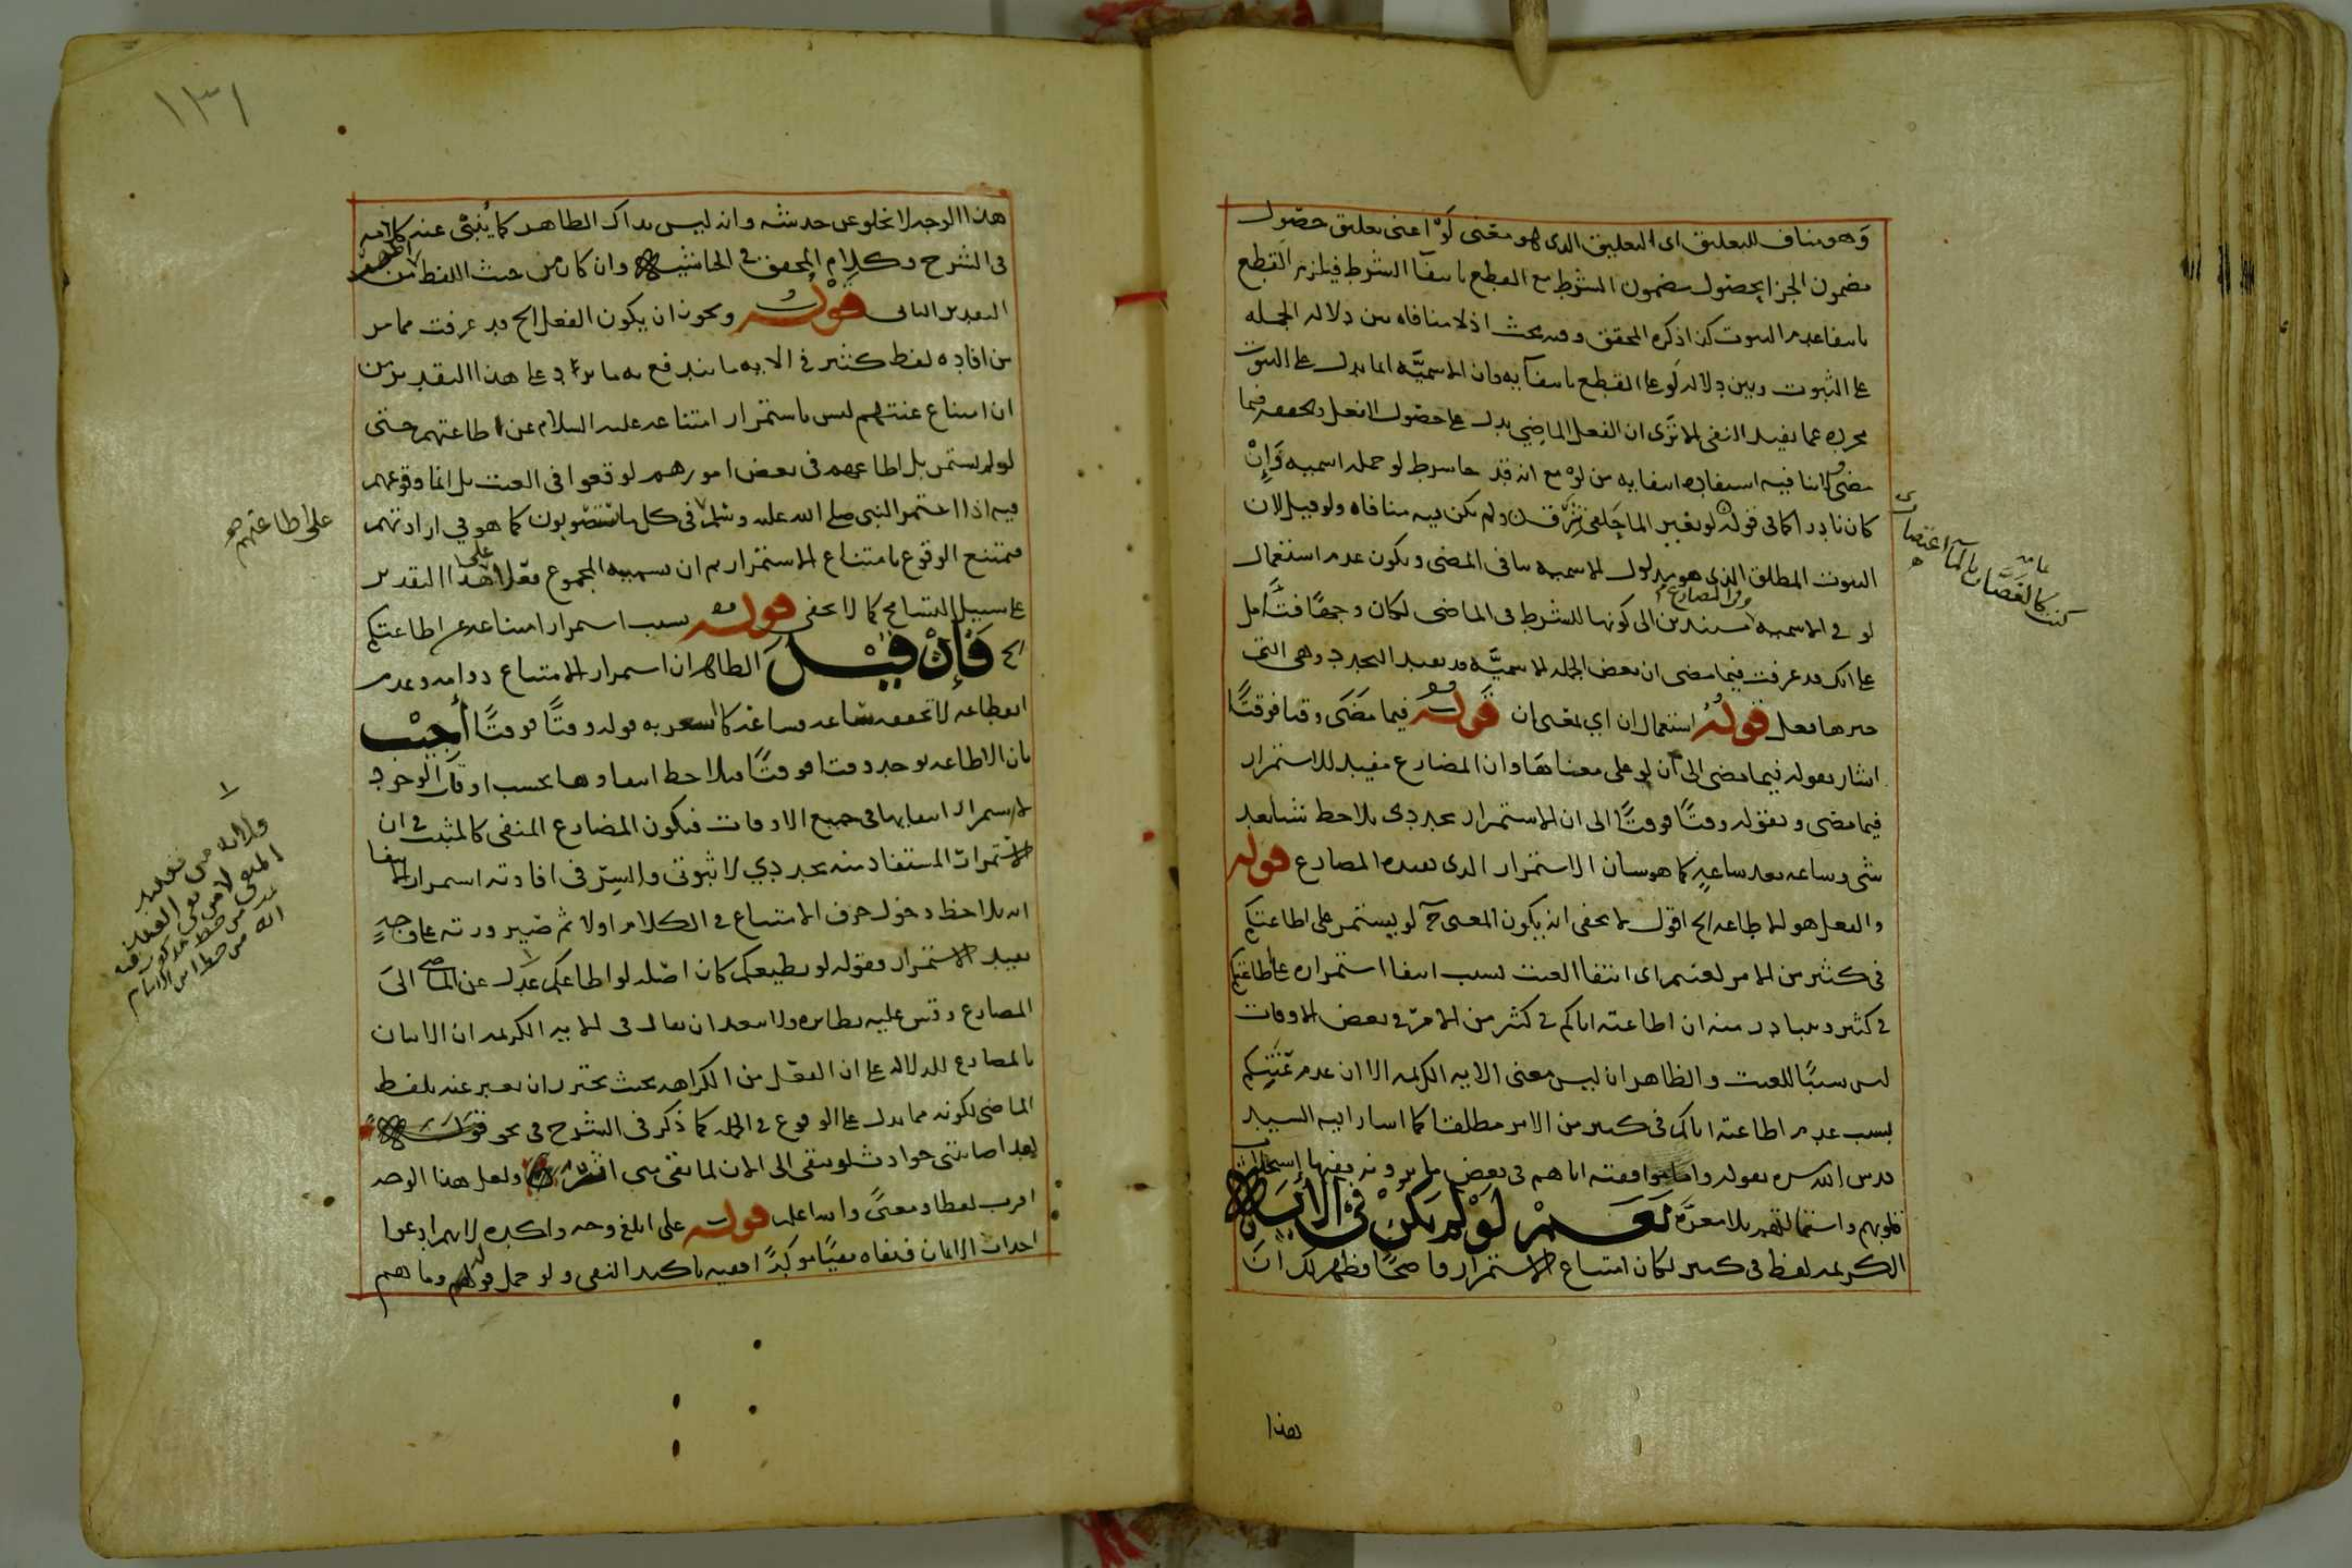 وهو مناف للتعليق اى التعليق الذى هو معنى لَوْ اعنى تعليق حصول
مضمون الجزا بحصول مضمون الشرط مع القطع بانتفا الشرط فيلزم القطع
بانتفا عدم الثبوت كذا ذكره المحقق وفيه بحث اذ لا منافاه بين دلاله الجمله
على الثبوت وبين دلاله لو على القطع بانتفآيه فان الاسميَّه انما يدل على الثبوت
مجرده عما يفيد النفى الا تَرَى ان الفعل الماضِي يدل على حصول الفعل وتحققه فيما
مضى ولا تنا فيه استفاده انتفايه من لَوْ مع انه قد جا شرط لو جمله اسميه وَإنْ
كان نادرا كما فى قوله لو بغير الما حَلقى شَرِق ولم يكن فيه منافاه ولو قيل لان
الثبوت المطلق الذى هو مدلول الاسميه ينافى المضى ويكون عدم استعمال
لو فى الاسميه والمضارع مستندين الى كونها للشرط فى الماضى لكان وجهًا فتأمل
على انك قد عرفت فيما مضى ان بعض الجمله الاسميَّه قد يفيد التجدد وهى التى
خبرها فعل قولُهُ استعمال ان اي بمعنى ان قولُه فيما مَضَى وقتا فوقتًا
اشار بقوله فيما مضى الى أن لو على معناهَا وان المضارع مفيد للاستمرار
فيما مضى وبقوله وقتًا فوقتًا الى ان الاستمرار تجددى يلاحظ شئا بعد
شى وساعه بعد ساعةٍ كما هو شان الاستمرار الذى يفيده المضارع قوله
والفعل هو الاطاعه الخ اقول لا يخفى انه يكون المعنى ح لو يستمر على اطاعتكم
فى كثير من الامر لعنتم اى انتفا العنت بسبب انتفا استمراره على اطاعتكم
فى كثير ويتبادر منه ان اطاعته اياكم فى كثير من الامر فى بعض الاوقات
ليس سببًا للعنت والظاهر ان ليس معنى الايه الكريمه الا ان عدم عَنَتِكم
بسبب عدم اطاعته اياكم فى كثير من الامر مطلقا كما اشار اليه السيد
قدس الله سره بقوله واما موافقته اياهم فى بعض ما يرونه ففيها إستجلاب
قلوبهم واستمالتهم بلا معرَّه نَعَمْ لَوْ لم يَكنْ فى الآية
الكريمه لفظ فى كثير لكان امتناع الاستمرار واضحًا فظهر لك انَّ
هذا
كنت كالغصَّان بالمآ اعتصارى
هذا الوجه لا يخلو عن حدشه وانه ليس بذاك الظاهر كما يُنبئ عنه كلامه
فى الشرح وكلام المحقق فى الحاشيه وان كان من حيث اللفظ اظهر من
التقدير الثانى قولُه ويجوز ان يكون الفعل الخ قد عرفت مما مر
من افاده لفظ كثير فى الايه ما يندفع به ما يرد على هذا التقدير من
ان امتناع عنتهم ليس باستمرار امتناعه عليه السلام عن اطاعتهم حتى
لو لم يستمر بل اطاعهم فى بعض امورهم لوقعوا فى العنت بل انما وقوعهم
فيه اذا استمر النبى صلى الله عليه وسلم فى كل ما يستصوبون كما هو في ارادتهم
فيمتنع الوقوع بامتناع الاستمرار ثم ان تسميه المجموع فعلا على هذا التقدير
على سبيل التسامح كما لا يخفى قوله بسبب استمرار امتناعه عن اطاعتكم
الخ فَإنْ قِيْلَ الظاهر ان استمرار الامتناع دوامه وعدم
انقطاعه لا تحققه ساعه فساعة كما اشعر به قوله وقتًا فوقتًا أُجيْب
بان الاطاعه توجد وقتا فوقتًا فيلاحظ انتفاوها بحسب اوقات الوجود
لاستمرار انتفايها فى جميع الاوقات فيكون المضارع المنفى كالمثبت فى ان
الاستمرار المستفاد منه تجددي لا ثبوتى والسِرّ فى افادته استمرار الانتفا
انه يلاحظ دخول حرف الامتناع فى الكلام اولا ثم صيرورته على وجهٍ
يفيد الاستمرار فقوله لو يطيعكم كان اصْله لو اطاعكم عدل عن الماضى الى
المضارع وقس عليه نظايره ولا يبعد ان يقال فى الايه الكريمه ان الاتيان
بالمضارع للدلاله على ان الفعل من الكراهه بحيث يحترز ان يعبر عنه بلفظ
الماضى لكونه مما يدل على الوقوع فى الجمله كما ذكر فى الشرح فى نحو قوله
لقد اصابتنى حوادث لو تبقى الى الان لما بقى منى اثر ولعل هذا الوجه
اقرب لفظا ومعنىً والله اعلم قولُه على ابلغ وجه واكبده لانهم ادعوا
احداث الايمان فنفاه نفيًا موكدًا افعيه تاكيد النفى ولو حمل قولهم وما هم
على اطاعتهم
١٣١